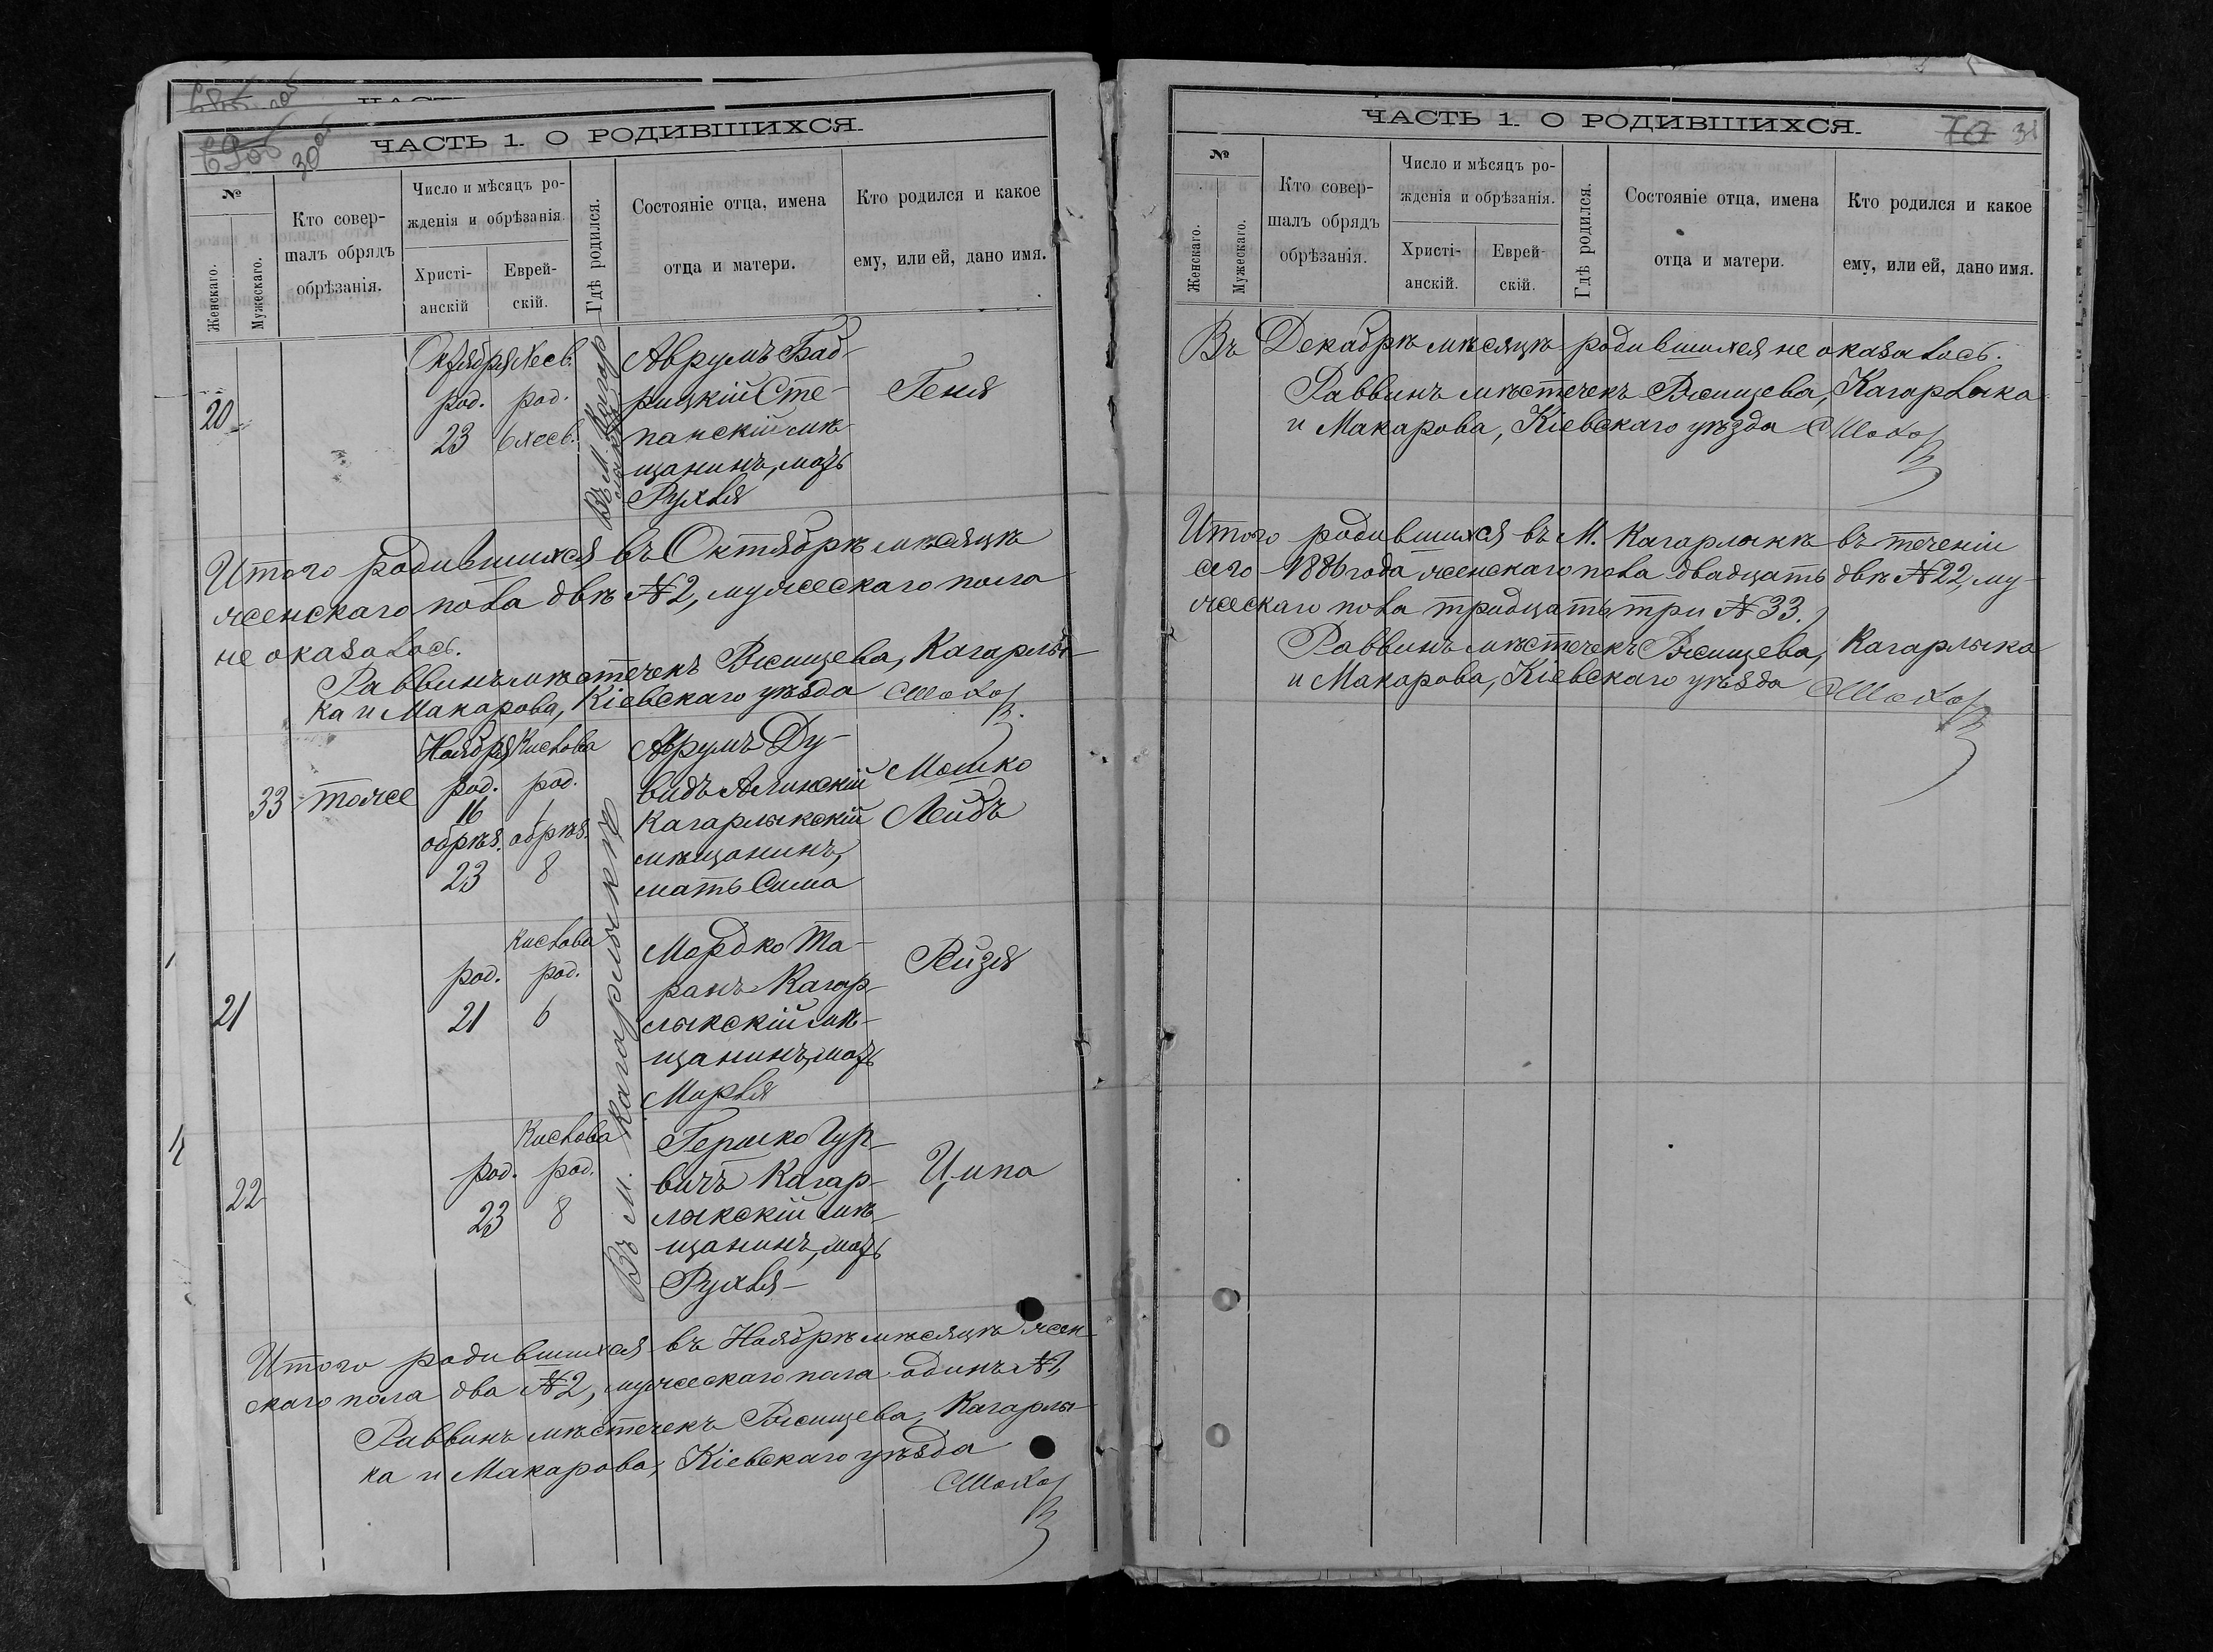 ЧАСТЬ 1. О РОДИВШИХСЯ.
№
Женскаго.
Мужескаго.
Кто совер-
шалъ обрядъ
обрѣзанія.
Число и мѣсяцъ ро-
жденія и обрѣзанія.
Христі-
анскій
Еврей-
скій.
Гдѣ родился.
Состояніе отца, имена
отца и матери.
Кто родился и какое
ему, или ей, дано имя.
20
Октября
род.
23
Хесв.
род.
6 хесв.
Въ М. Кагар
Аврумъ
рицкій Сте-
панскій мѣ-
щанинъ, мать
Рухля
Геня
Итого родившихся въ Октябрѣ мѣсяцѣ
женскаго пола двѣ №2, мужескаго пола
не оказалось.
Раввинъ мѣстечекъ Ржищева, Кагарлы-
ка и Макарова, Кіевскаго уѣзда
33
тоже
Ноября
род.
16
обрѣз.
23
Кислова
род.
1
обрѣз.
8
Въ М. Кагарлыкѣ
Аврумъ Ду-
видъ Алинскій
Кагарлыкскій
мѣщанинъ,
мать Сима
Мошко
Лейбъ
21
род.
21
Кислова
род.
6
Мордко Та-
ранъ Кагар-
лыкскій мѣ-
щанинъ, мать
Марья
Рейзя
22
род.
23
Кислова
род.
8
Гершко Гур-
вичъ Кагар-
лыкскій мѣ-
щанинъ, мать
Рухля
Ципа
Итого родившихся въ Ноябрѣ мѣсяцѣ жен-
скаго пола два №2, мужескаго пола одинъ №1,
Раввинъ мѣстечекъ Ржищева, Кагарлы-
ка и Макарова, Кіевскаго уѣзда
ЧАСТЬ 1. О РОДИВШИХСЯ.
70
№
Женскаго.
Мужескаго.
Кто совер-
шалъ обрядъ
обрѣзанія.
Число и мѣсяцъ ро-
жденія и обрѣзанія.
Христі-
анскій.
Еврей-
скій.
Гдѣ родился.
Состояніе отца, имена
отца и матери.
Кто родился и какое
ему, или ей, дано имя.
Въ Декабрѣ мѣсяцѣ родившихся не оказалось.
Раввинъ мѣстечекъ Ржищева, Кагарлыка
и Макарова, Кіевскаго уѣзда
Итого родившихся въ М. Кагарлыкѣ въ теченіи
сего 1886 года женскаго пола двадцать двѣ №22, му-
жескаго пола тридцать три №33.
Раввинъ мѣстечекъ Ржищева, Кагарлыка
и Макарова, Кіевскаго уѣзда